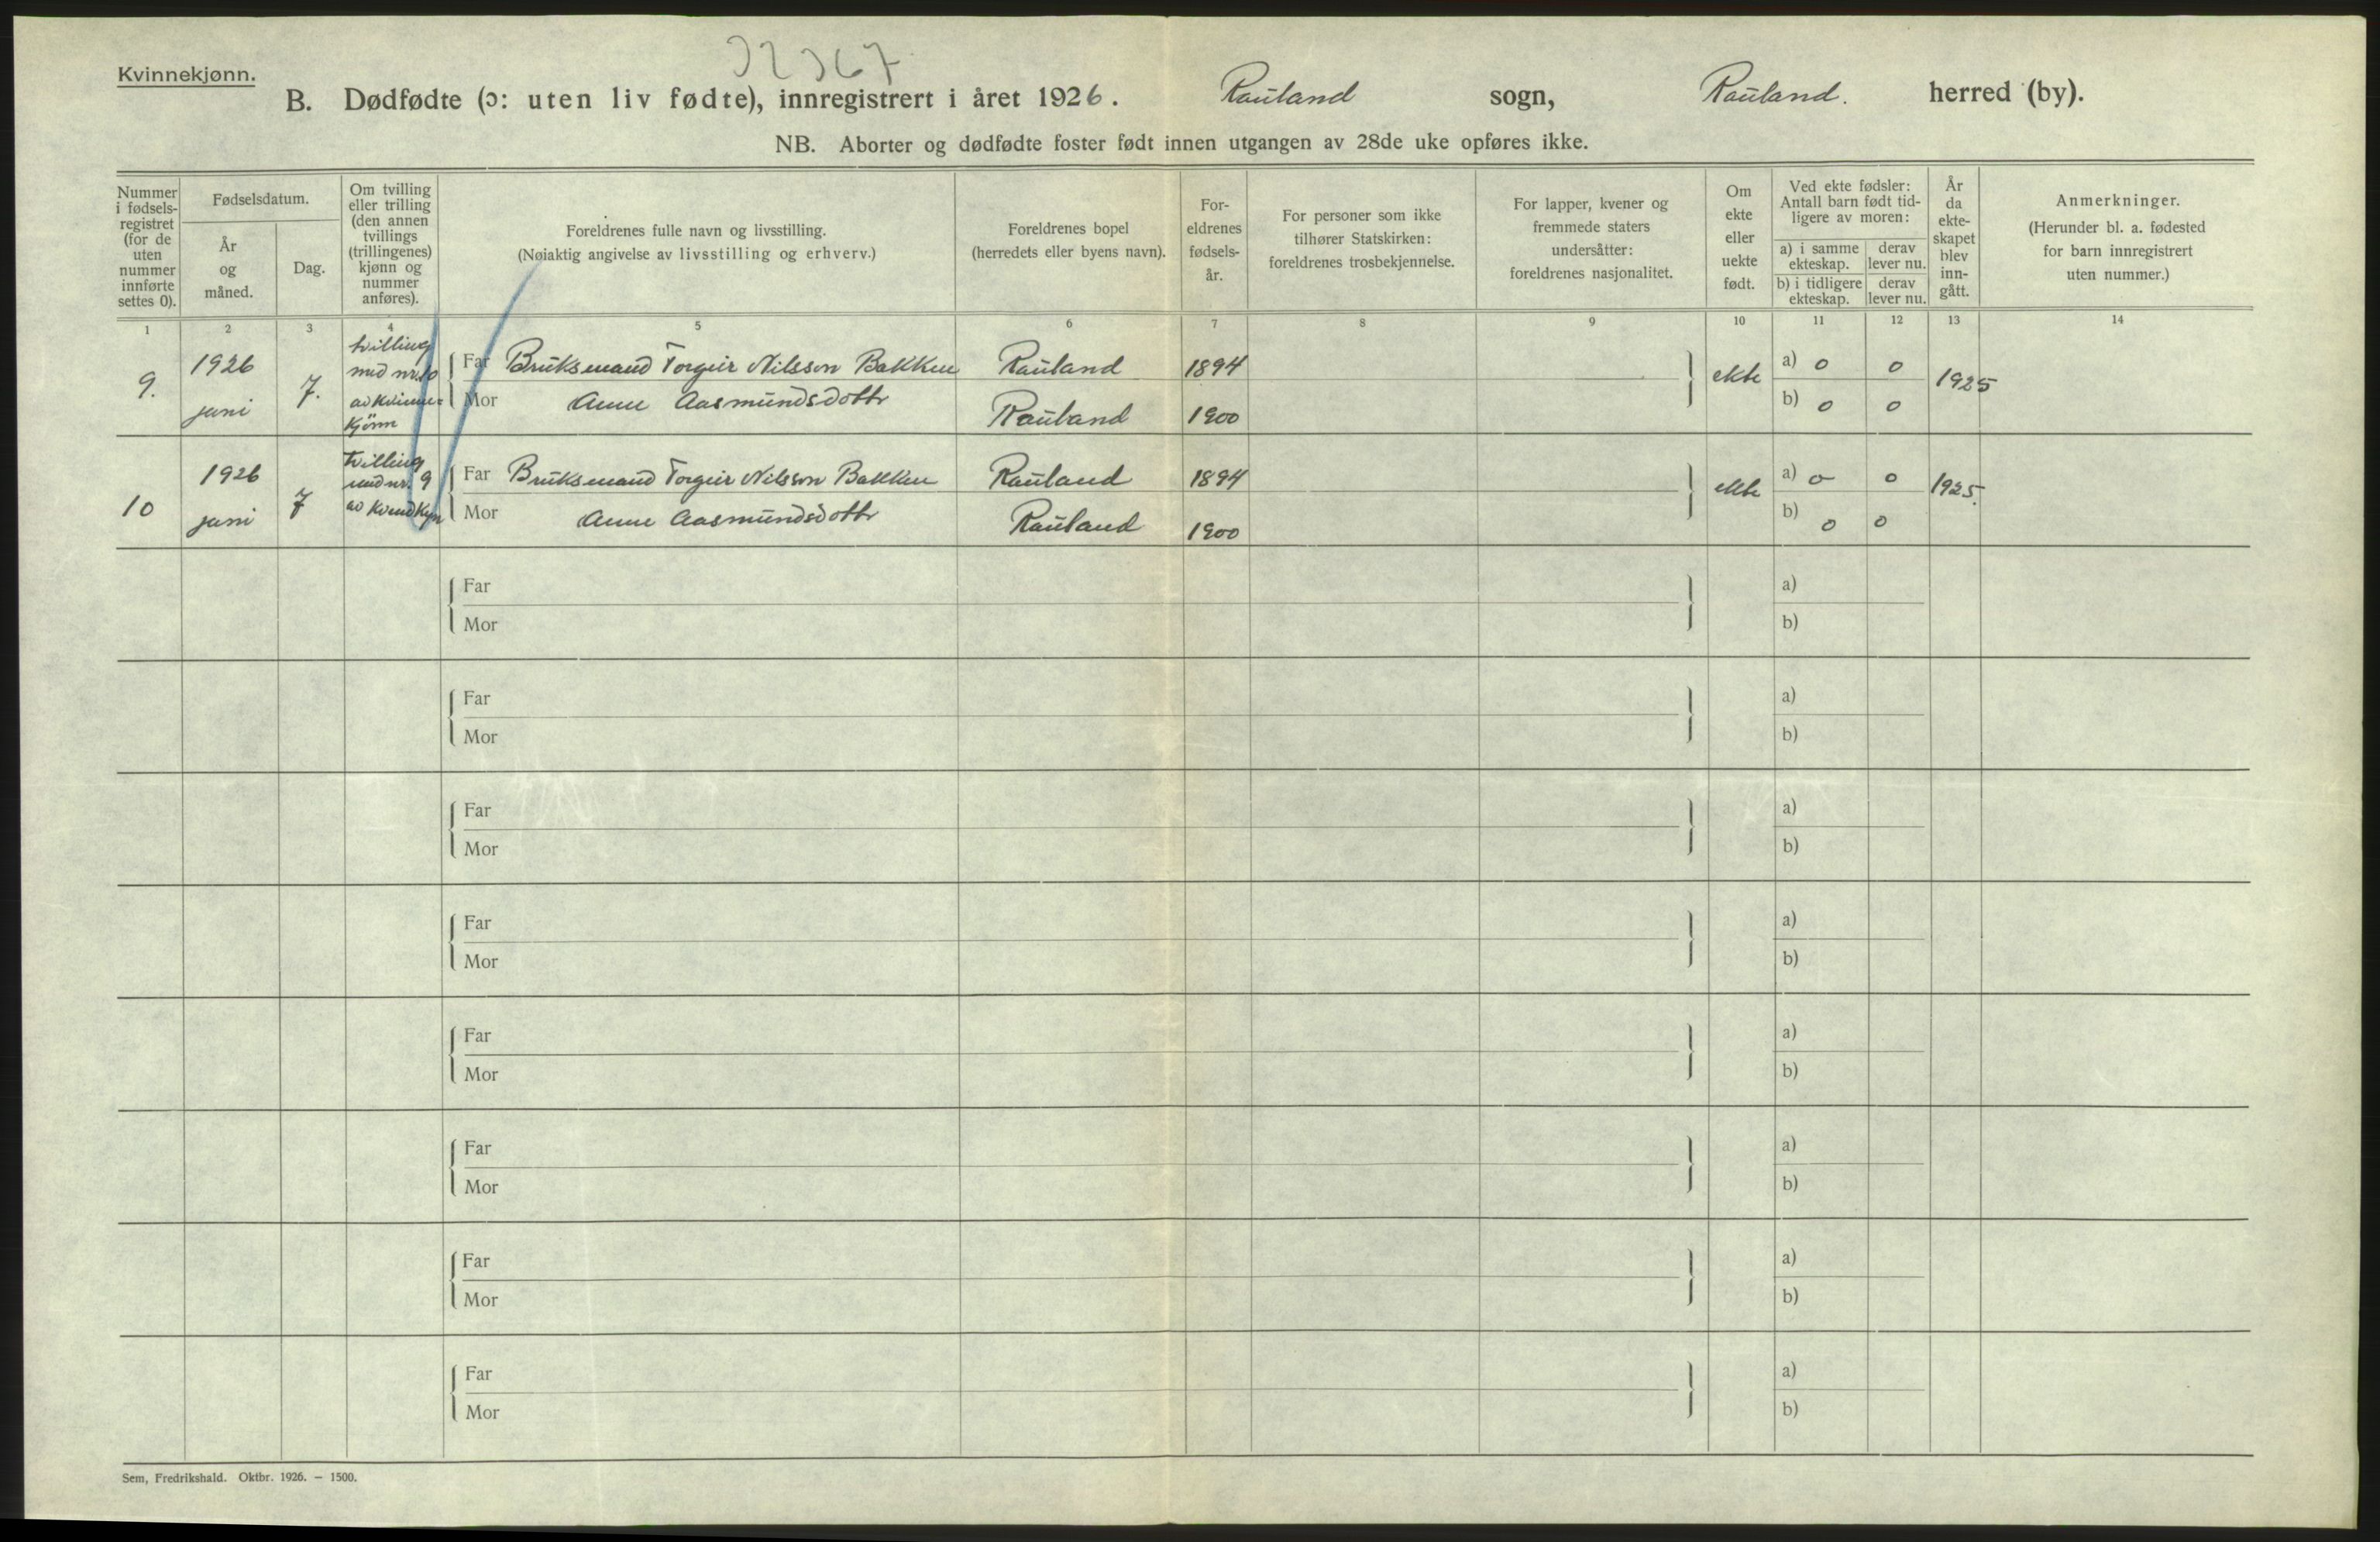 32367
Kvinnekjønn.
B. Dødfødte (ɔ: uten liv fødte), innregistrert i året 1926. Rauland sogn, Rauland. herred (by).
NB. Aborter og dødfødte foster født innen utgangen av 28de uke opføres ikke.
Nummer i fødsels-registret (for de uten nummer innførte settes 0).
Fødselsdatum.
År og måned.
Dag.
Om tvilling eller trilling (den annen tvillings (trillingenes) kjønn og nummer anføres).
Foreldrenes fulle navn og livsstilling.
(Nøiaktig angivelse av livsstilling og erhverv.)
Foreldrenes bopel
(herredets eller byens navn).
For-eldrenes fødsels-år.
For personer som ikke tilhører Statskirken: foreldrenes trosbekjennelse.
For lapper, kvener og fremmede staters undersåtter: foreldrenes nasjonalitet.
Om ekte eller uekte født.
Ved ekte fødsler: Antall barn født tid-ligere av moren:
a) i samme ekteskap.
derav lever nu.
b) i tidligere ekteskap.
derav lever nu.
År da ekte-skapet blev inn-gått.
Anmerkninger.
(Herunder bl. a. fødested for barn innregistrert uten nummer.)
1 2 3 4 5 6 7 8 9 10 11 12 13 14
9. 1926 juni 7. tvilling med nr. 10 av kvinne-kjönn
Far Bruksmand Torgeir Nilsson Bakken Rauland 1894 ekte a) 0 0 1925
Mor Anne Aasmundsdottr Rauland 1900 b) 0 0
10 1926 juni 7 tvilling med nr. 9 av kvendkyn
Far Bruksmand Torgeir Nilsson Bakken Rauland 1894 ekte a) 0 0 1925.
Mor Anne Aasmundsdottr Rauland 1900 b) 0 0
Far a)
Mor b)
Far a)
Mor b)
Far a)
Mor b)
Far a)
Mor b)
Far a)
Mor b)
Far a)
Mor b)
Far a)
Mor b)
Far a)
Mor b)
Sem, Fredrikshald. Oktbr. 1926. — 1500.